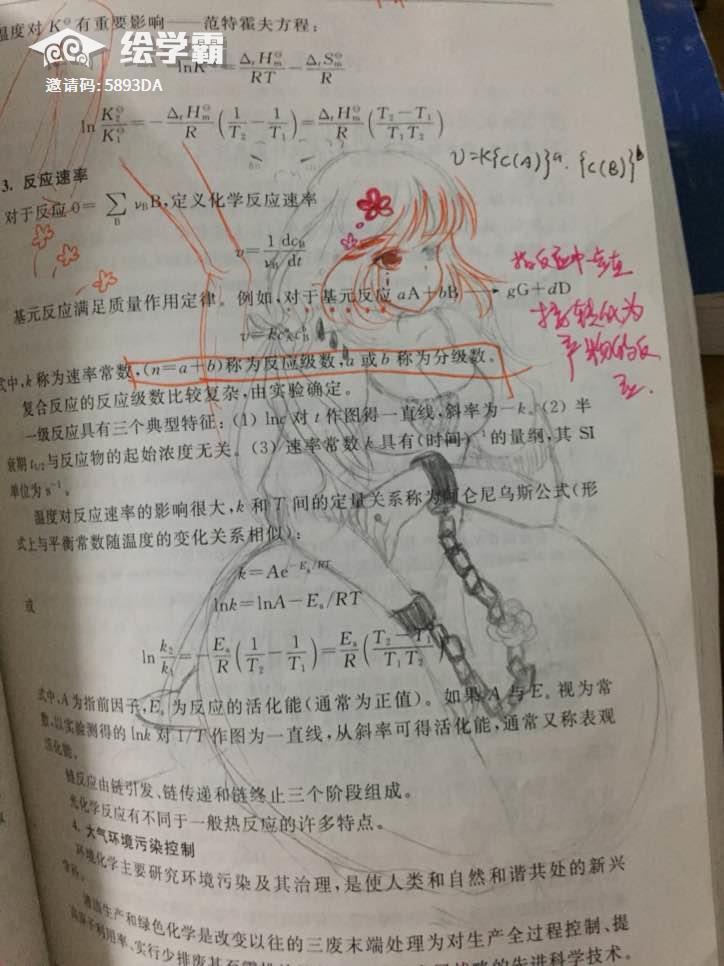 温度对 K⊖ 有重要影响——范特霍夫方程:
绘学霸
邀请码:5893DA
lnK⊖=−ΔrHm⊖/RT−ΔrSm⊖/R
ln K2⊖/K1⊖=−ΔrHm⊖/R(1/T2−1/T1)=ΔrHm⊖/R(T2−T1/T1T2)
υ=K{C(A)}a·{C(B)}b
3. 反应速率
对于反应0=∑B νBB,定义化学反应速率
υ=1/νB dcB/dt
基元反应满足质量作用定律。例如,对于基元反应 aA+bB→gG+dD
υ=kcAacBb
指反应中一步直
接转化为
产物的反
应.
式中,k 称为速率常数,(n=a+b)称为反应级数,a 或 b 称为分级数。
复合反应的反应级数比较复杂,由实验确定。
一级反应具有三个典型特征:(1) lnc 对 t 作图得一直线,斜率为−k。(2) 半
衰期 t1/2与反应物的起始浓度无关。(3) 速率常数 k 具有(时间)−1的量纲,其 SI
单位为 s−1。
温度对反应速率的影响很大,k 和 T 间的定量关系称为阿仑尼乌斯公式(形
式上与平衡常数随温度的变化关系相似):
k=Ae−Ea/RT
或
lnk=lnA−Ea/RT
ln k2/k1=−Ea/R(1/T2−1/T1)=Ea/R(T2−T1/T1T2)
式中,A 为指前因子,Ea 为反应的活化能(通常为正值)。如果 A 与 Ea 视为常
数,以实验测得的 lnk 对 1/T 作图为一直线,从斜率可得活化能,通常又称表观
活化能。
链反应由链引发、链传递和链终止三个阶段组成。
光化学反应有不同于一般热反应的许多特点。
4. 大气环境污染控制
环境化学主要研究环境污染及其治理,是使人类和自然和谐共处的新兴
学科。
清洁生产和绿色化学是改变以往的三废末端处理为对生产全过程控制、提
高原子利用率、实行少排废甚至零排
的先进科学技术。